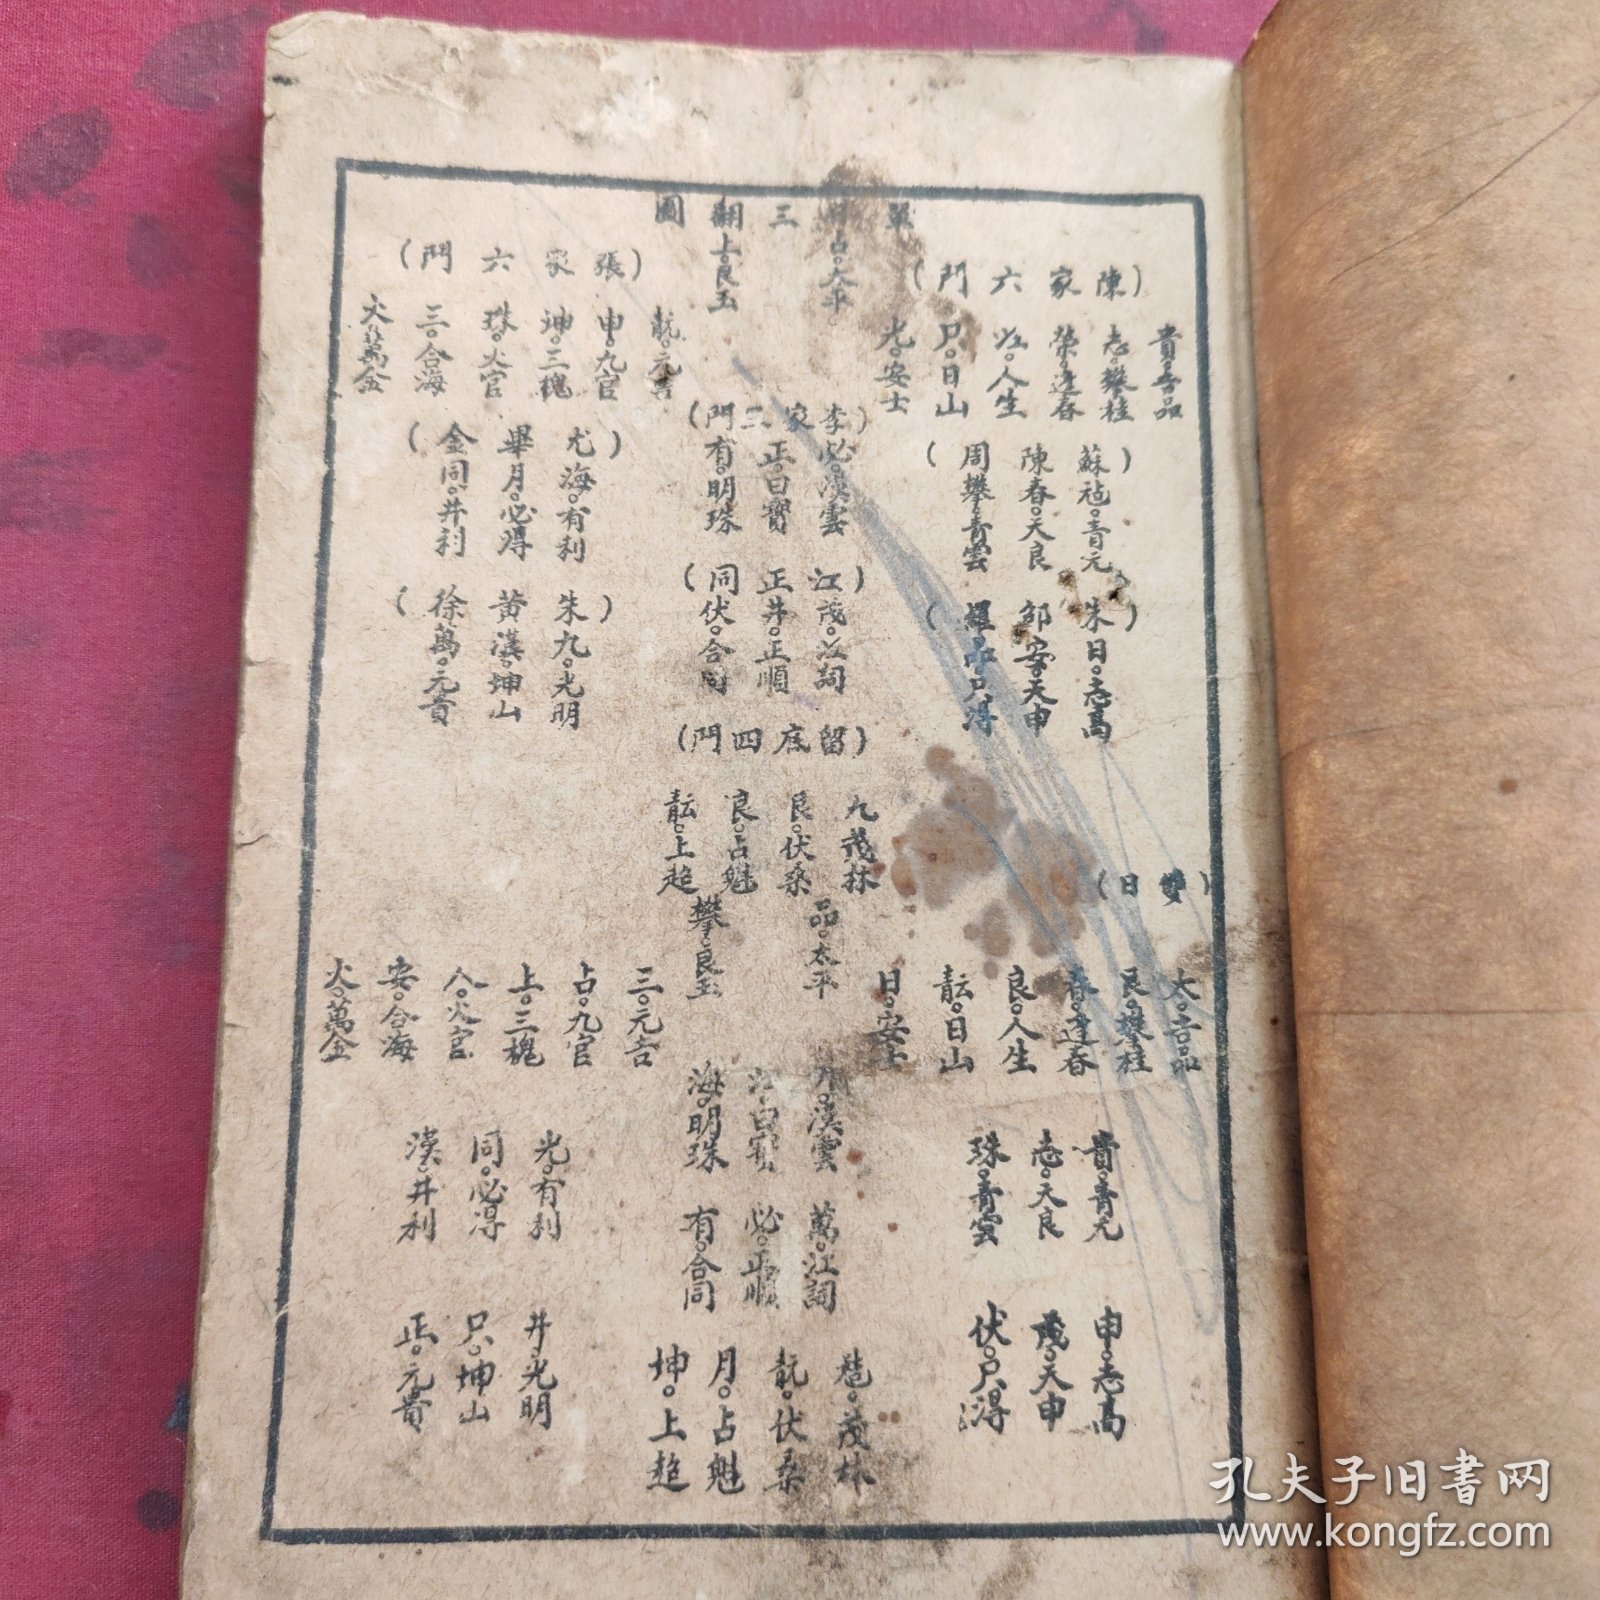 單日三翻圖
占。太平
上。良玉
(陳家六門)
貴。吉品
志。攀桂
榮。逢春
江。人生
只。日山
光。安士
(蘇 陳 周)
青元
春。天良
攀。青雲
(朱 邹 羅)
日。志高
安。天申
只得
(李家三門)
必。漢雲
正。日寶
有。明珠
(江 正 同)
茂。江詞
井。正順
伏。合同
(留底四門)
九。茂林
艮。伏桑
良。占魁
上超
(張家六門)
元吉
申。九官
坤。三槐
珠。火官
三。合海
火。萬金
(尤 畢 金)
海。有利
月。必得
同。井利
(朱 黄 徐)
九。光明
漢。坤山
萬。元貴
(雙日)
品。太平
攀。良玉
大。吉品
艮。攀桂
春。逢春
良。人生
日山
日。安士
貴。青元
志。天良
珠。青雲
申。志高
茂。天申
伏。只得
月。漢雲
江。日寶
海。明珠
萬。江詞
必。正順
有。合同
茂林
伏桑
月。占魁
坤。上超
三。元吉
占。九官
上。三槐
人。火官
安。合海
火。萬金
光。有利
同。必得
漢。井利
井。光明
只。坤山
正。元貴
孔夫子旧书网
www.kongfz.com